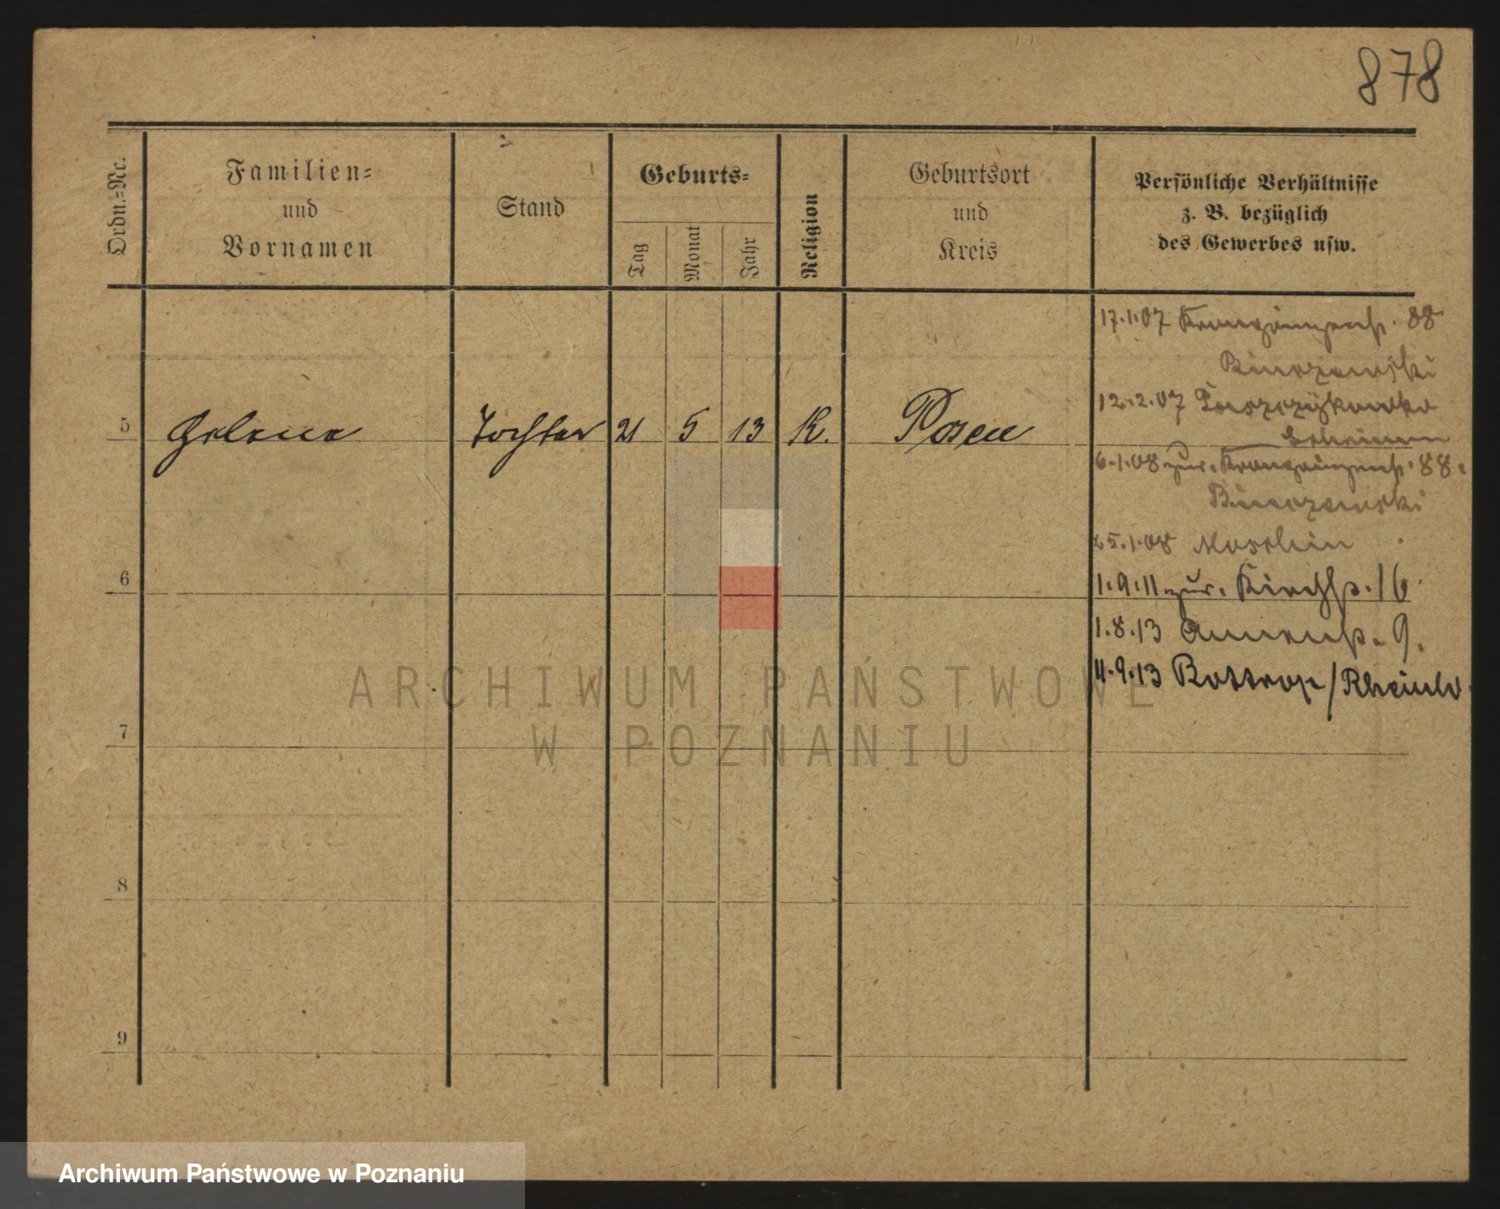 878
Ordn.-Nr.
Familien-
und
Vornamen
Stand
Geburts-
Tag
Monat
Jahr
Religion
Geburtsort
und
Kreis
Persönliche Verhältnisse
z. B. bezüglich
des Gewerbes usw.
17.1.07 88
12.2.07
5 Helene Tochter 21 5 13 K. Posen
6.1.08 zur. 88.
25.1.08
6
1.9.11 zur. Kirchstr. 16
1.8.13 9.
4.9.13 Bottrop / Rheinld.
7
8
9
ARCHIWUM PAŃSTWOWE
W POZNANIU
Archiwum Państwowe w Poznaniu